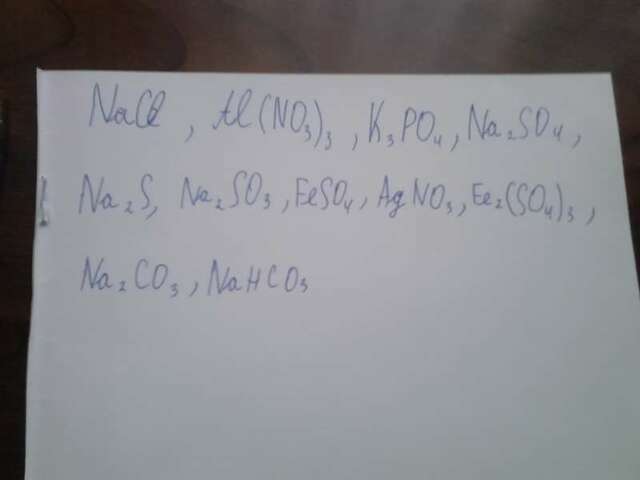 NaCl, Al(NO₃)₃, K₃PO₄, Na₂SO₄,
Na₂S, Na₂SO₃, FeSO₄, AgNO₃, Fe₂(SO₄)₃,
Na₂CO₃, NaHCO₃